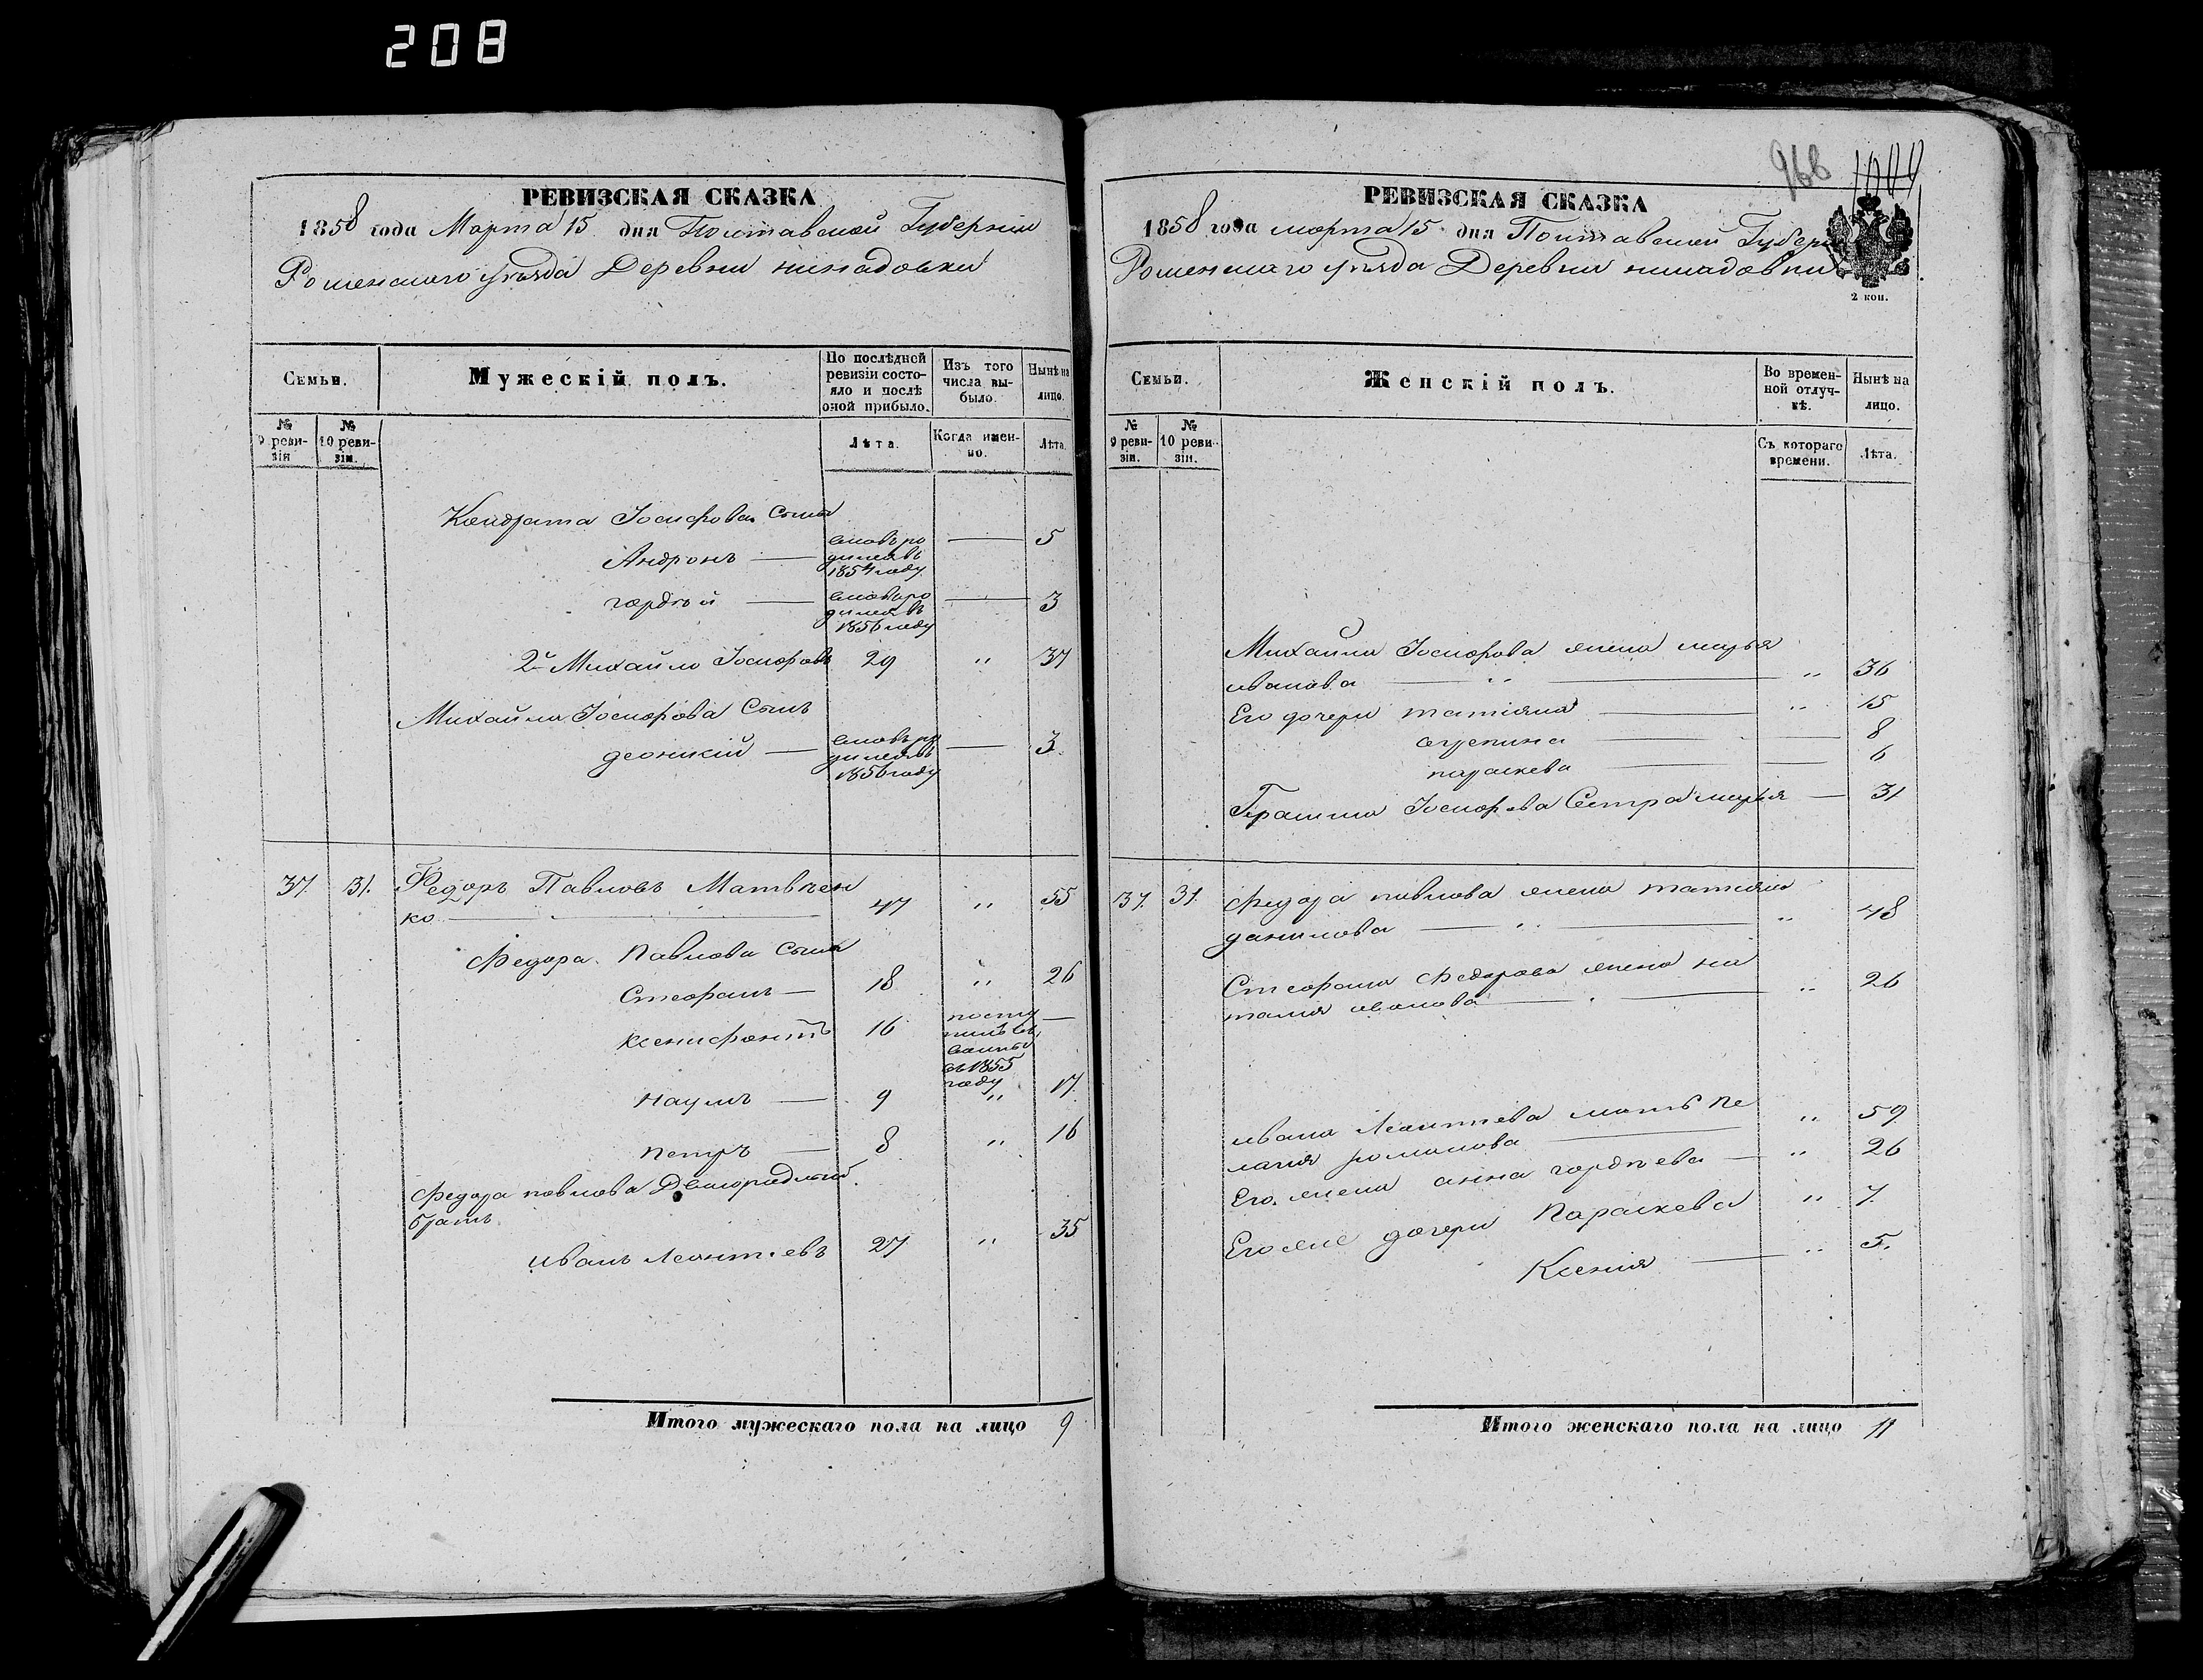 208
РЕВИЗСКАЯ СКАЗКА
1858 года Марта 15 дня Полтавской Губерніи
Роменскаго уѣзда Деревни
Семьи.
Мужескій полъ.
По послѣдней ревизіи состояло и послѣ оной прибыло.
Изъ того числа выбыло.
Нынѣ на лицо.
№ 9 ревизія
№ 10 ревизіи.
Лѣта.
Когда именно.
Лѣта.
Кондрата Іосифова Сыны
Андронъ — вновь родился въ 1854 году — 5
гордѣй — вновь родился въ 1856 году — 3
2й Михайло Іосифовъ 29 " 37
Михайла Іосифова Сынъ
деонисій — вновь родился въ 1856 году — 3
37. 31. Федоръ Павловъ Матвѣен
ко — 47 " 55
Федора Павлова Сыны
Стефанъ — 18 " 26
ксенифонтъ 16 посту
въ 1855 году —
наумъ — 9 " 17
петръ — 8 " 16
Федора павлова Двоюродный
братъ
иванъ Леонтіевъ 27 " 35
Итого мужескаго пола на лицо 9
966
РЕВИЗСКАЯ СКАЗКА
1858 года марта 15 дня Полтавской Губерніи
Роменскаго уѣзда Деревни
2 коп.
Семьи.
Женскій полъ.
Во временной отлучкѣ.
Нынѣ на лицо.
№ 9 ревизіи.
№ 10 ревизіи.
Съ котораго времени.
Лѣта.
Михайла Іосифова жена марья
иванова — " — " 36
Его дочери татіяна — " 15
агрепина — — 8
параскева — — 6
Іосифова Сестра марья — 31
37. 31. Федора павлова жена татіяна
данилова — " — " 48
Стефана Федорова жена на
талія иванова — " 26
ивана Леонтіева мать пе
лагія романова — " 59
Его жена анна гордѣева — " 26
Его же дочери Параскева " 7.
Ксенія — " 5.
Итого женскаго пола на лицо 11